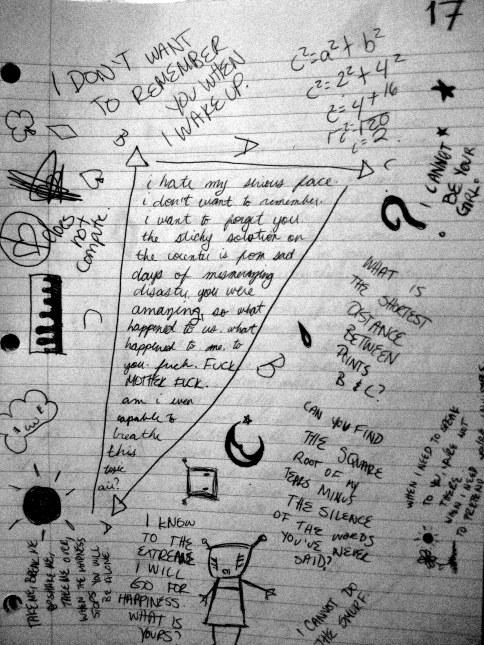 17
I DON'T WANT
TO REMEMBER
YOU WHEN
I WAKE UP.
c²=a²+b²
c²=2²+4²
c²=4+16
A
C
I CANNOT
BE YOUR
GIRL.
does
not
compute.
i hate my serious face.
i don't want to remember.
i want to forget you.
the sticky solution on
the counter is from sad
days of mesmerizing
disasty. you were
amazing, so what
happened to us. what
happened to me. to
you. fuck. FUCK.
MOTHER FUCK.
am i even
capable to
breathe
this
air?
B
?
WHAT IS
THE SHORTEST
DISTANCE
BETWEEN
POINTS
B & C?
CAN YOU FIND
THE SQUARE
ROOT OF MY
TEARS MINUS
THE SILENCE
OF THE WORDS
YOU'VE NEVER
SAID?
WHEN I NEED TO SPEAK
TO YOU YOU'RE NOT
THERE
TO PRETEND
I KNOW
TO THE
EXTREME
I WILL
GO FOR
HAPPINESS.
WHAT IS
YOURS?
TAKE ME, BREAK ME
SHAKE ME,
TAKE ME OVER,
WHEN THE MADNESS
STOPS YOU WILL
BE ALONE.
I CANNOT DO
THE SMURF.